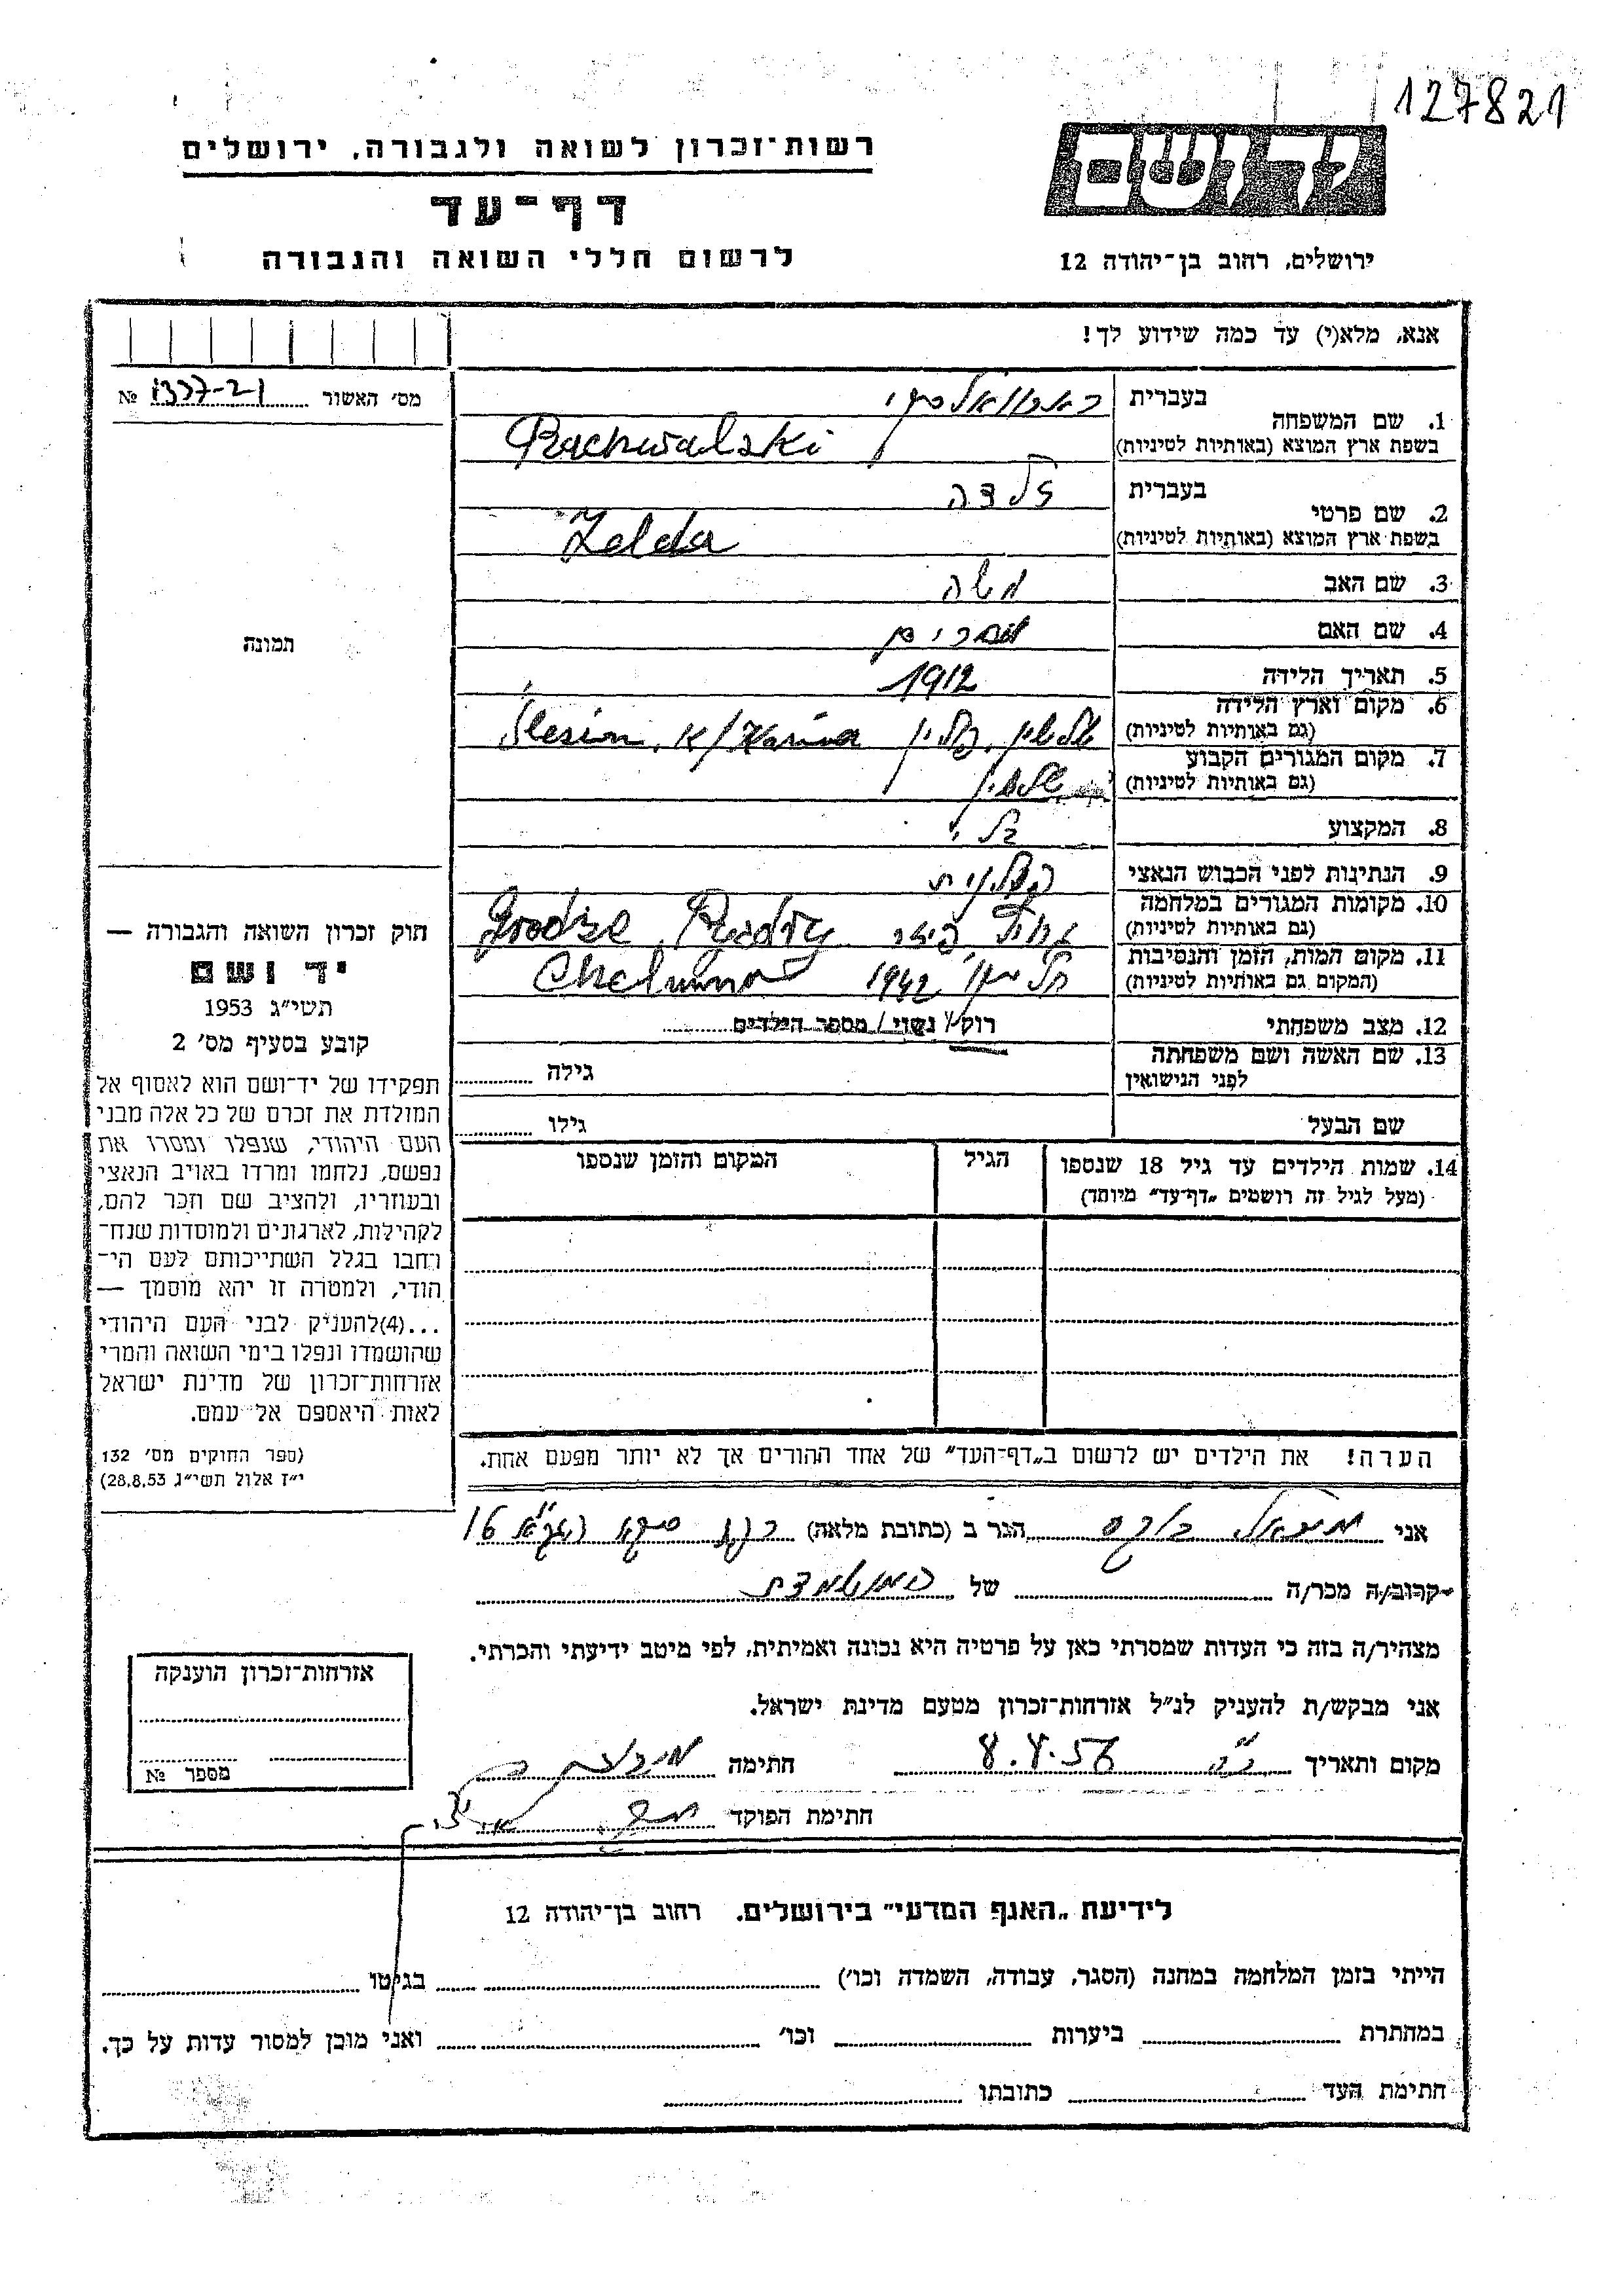 127821
יד ושם
ירושלים, רחוב בן-יהודה 12
רשות-זכרון לשואה ולגבורה, ירושלים
דף-עד
לרשום חללי השואה והגבורה
אנא, מלא(י) עד כמה שידוע לך!
מס' האשור 1337-21 №
תמונה
חוק זכרון השואה והגבורה —
יד ושם
תשי״ג 1953
קובע בסעיף מס' 2
תפקידו של יד-ושם הוא לאסוף אל
המולדת את זכרם של כל אלה מבני
העם היהודי, שנפלו ומסרו את
נפשם, נלחמו ומרדו באויב הנאצי
ובעוזריו, ולהציב שם וזכר להם,
לקהילות, לארגונים ולמוסדות שנח-
רחבו בגלל השתייכותם לעם הי-
הודי, ולמטרה זו יהא מוסמך —
...(4)להעניק לבני העם היהודי
שהושמדו ונפלו בימי השואה והמרי
אזרחות-זכרון של מדינת ישראל
לאות היאספם אל עמם.
(ספר החוקים מס' 132
י״ז אלול תשי״ג, 28.8.53)
1. שם המשפחה
בעברית ראכוואלסקי
בשפת ארץ המוצא (באותיות לטיניות) Rachwalski
2. שם פרטי
בעברית זלדה
בשפת ארץ המוצא (באותיות לטיניות) Zelda
3. שם האב משה
4. שם האם
5. תאריך הלידה 1912
6. מקום וארץ הלידה
(גם באותיות לטיניות) שלשין, פולין Ślesin, k/Konina
7. מקום המגורים הקבוע
(גם באותיות לטיניות) שלשין
8. המקצוע בלי
9. הנתינות לפני הכבוש הנאצי פולנית
10. מקומות המגורים במלחמה
(גם באותיות לטיניות) Grodźce
11. מקום המות, הזמן והנסיבות
(המקום גם באותיות לטיניות) חלמנו 1942 Chelmno
12. מצב משפחתי רוק/ נשוי / מספר הילדים
13. שם האשה ושם משפחתה
לפני הנישואין
גילה
שם הבעל גילו
14. שמות הילדים עד גיל 18 שנספו
(מעל לגיל זה רושמים „דף-עד״ מיוחד)
הגיל
המקום והזמן שנספו
הערה! את הילדים יש לרשום ב„דף-העד״ של אחד ההורים אך לא יותר מפעם אחת.
אני הגר ב (כתובת מלאה) רמת 16
קרוב/ה מכר/ה של
מצהיר/ה בזה כי העדות שמסרתי כאן על פרטיה היא נכונה ואמיתית, לפי מיטב ידיעתי והכרתי.
אני מבקש/ת להעניק לנ״ל אזרחות-זכרון מטעם מדינת ישראל.
מקום ותאריך 8.4.56 חתימה
חתימת הפוקד
אזרחות-זכרון הוענקה
מספר №
לידיעת „האגף המדעי״ בירושלים. רחוב בן-יהודה 12
הייתי בזמן המלחמה במחנה (הסגר, עבודה, השמדה וכו') בגיטו
במחתרת ביערות וכו' ואני מוכן למסור עדות על כך.
חתימת העד כתובתו